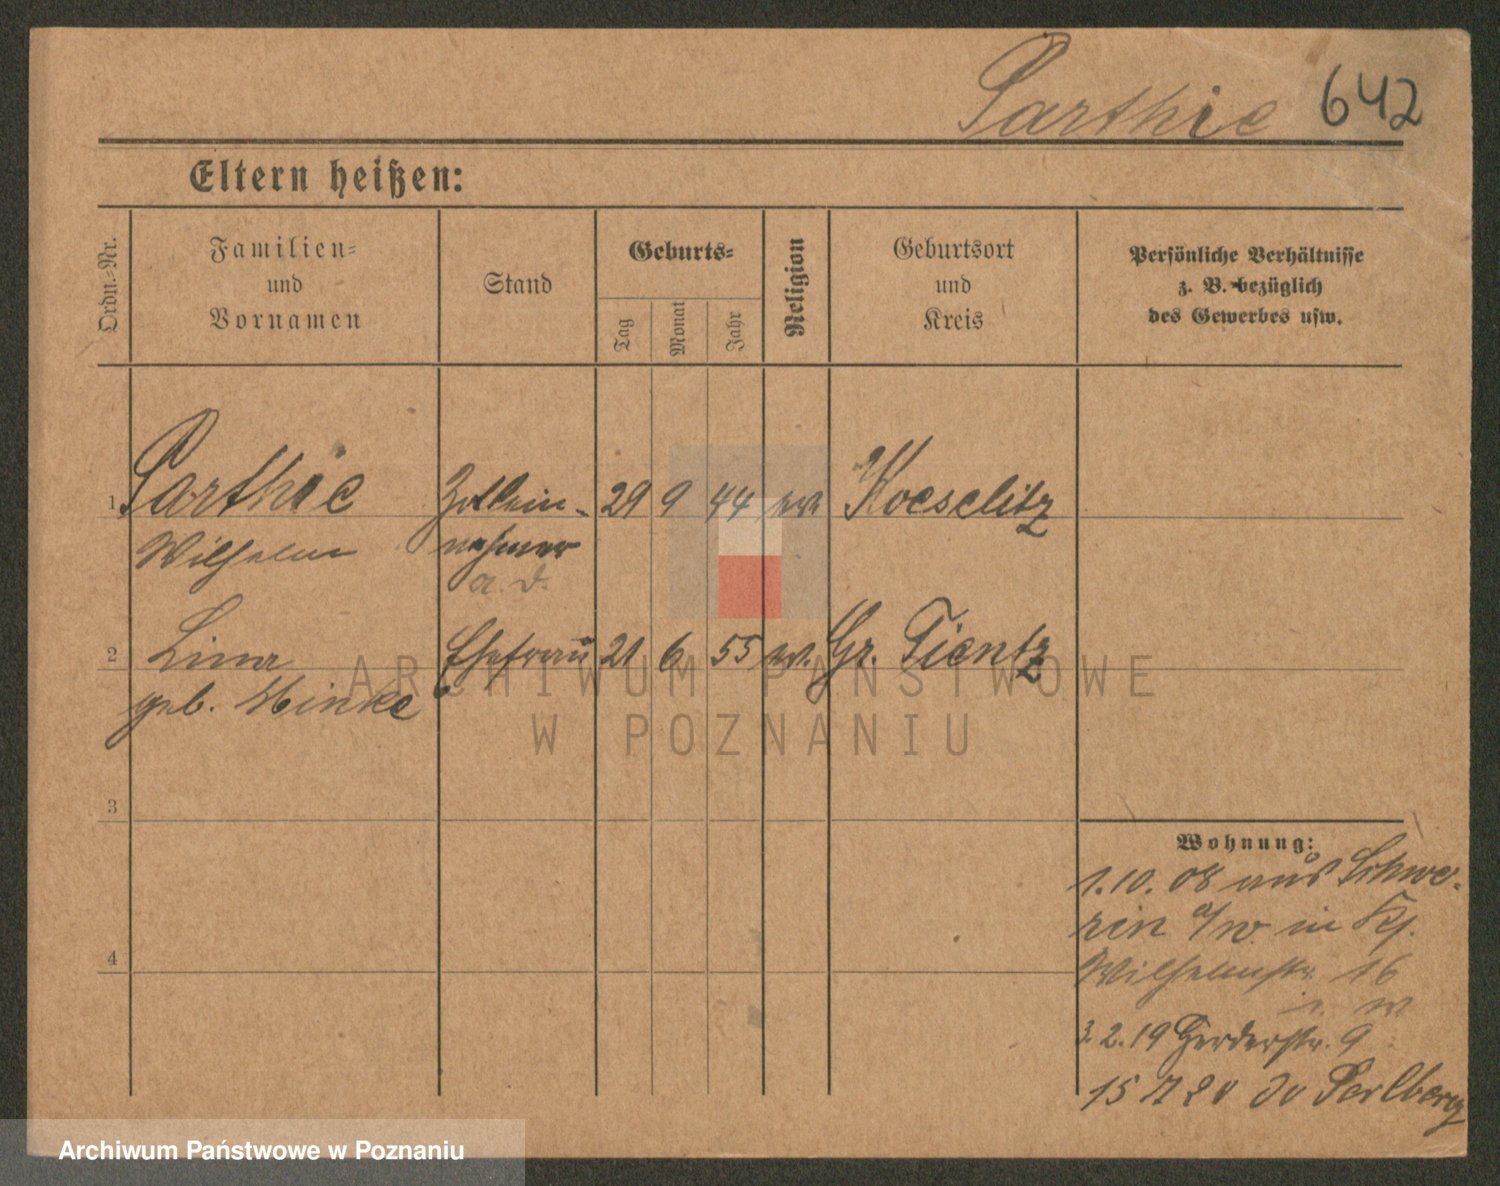 Parthie 642
Eltern heißen:
Ordn.-Nr.
Familien- und Vornamen
Stand
Geburts-
Tag
Monat
Jahr
Religion
Geburtsort und Kreis
Persönliche Verhältnisse
z. B. bezüglich
des Gewerbes usw.
1 Parthie Zollein- 29 9 44 ev. Koeselitz
Wilhelm nehmer
a. D.
2 Lina Ehefrau 21 6 55 ev. Gr. Tientz
geb. Hinke
3
4
Wohnung:
1.10.08 aus Schwe-
rin a/W. in
Wilhelmstr. 16
3.2.19 Herderstr. 9
15 Perlberg
ARCHIWUM PAŃSTWOWE
W POZNANIU
Archiwum Państwowe w Poznaniu